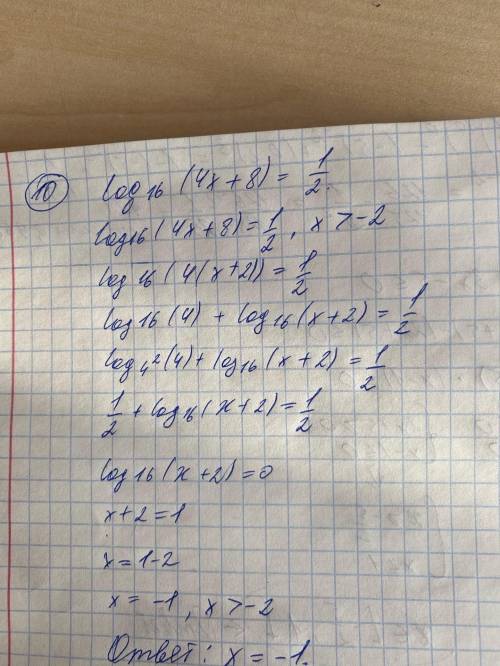 10 log₁₆ (4x+8) = 1/2.
log₁₆(4x+8)=1/2, x>-2
log₁₆(4(x+2))=1/2
log₁₆(4)+log₁₆(x+2)=1/2
log₄²(4)+log₁₆(x+2)=1/2
1/2+log₁₆(x+2)=1/2
log₁₆(x+2)=0
x+2=1
x=1-2
x=-1, x>-2
Ответ: x=-1.